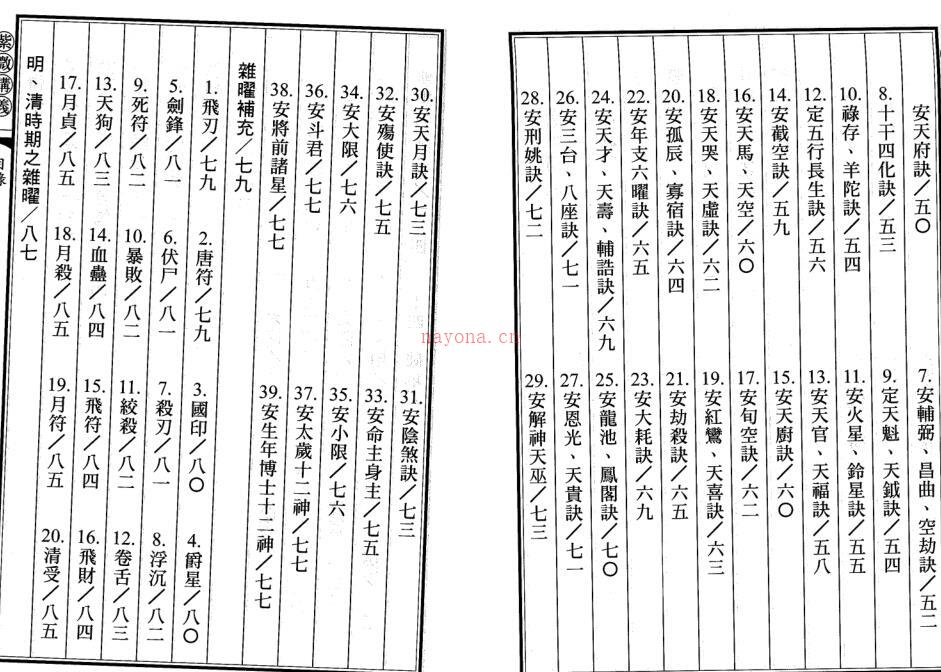 安天府訣／五〇
7.安輔弼、昌曲、空劫訣／五二
8.十干四化訣／五三
9.定天魁、天鉞訣／五四
10.祿存、羊陀訣／五四
11.安火星、鈴星訣／五五
12.定五行長生訣／五六
13.安天官、天福訣／五八
14.安截空訣／五九
15.安天廚訣／六〇
16.安天馬、天空／六〇
17.安旬空訣／六二
18.安天哭、天虛訣／六二
19.安紅鸞、天喜訣／六三
20.安孤辰、寡宿訣／六四
21.安劫殺訣／六五
22.安年支六曜訣／六五
23.安大耗訣／六九
24.安天才、天壽、輔誥訣／六九
25.安龍池、鳳閣訣／七〇
26.安三台、八座訣／七一
27.安恩光、天貴訣／七一
28.安刑姚訣／七二
29.安解神天巫／七三
30.安天月訣／七三
31.安陰煞訣／七三
32.安殤使訣／七五
33.安命主身主／七五
34.安大限／七六
35.安小限／七六
36.安斗君／七七
37.安太歲十二神／七七
38.安將前諸星／七七
39.安生年博士十二神／七七
雜曜補充／七九
1.飛刃／七九
2.唐符／七九
3.國印／八〇
4.爵星／八〇
5.劍鋒／八一
6.伏尸／八一
7.殺刃／八一
8.浮沉／八二
9.死符／八二
10.暴敗／八二
11.絞殺／八二
12.卷舌／八三
13.天狗／八三
14.血蠱／八四
15.飛符／八四
16.飛財／八四
17.月貞／八五
18.月殺／八五
19.月符／八五
20.清受／八五
明、清時期之雜曜／八七
紫微講義一
目錄
nayona.cn